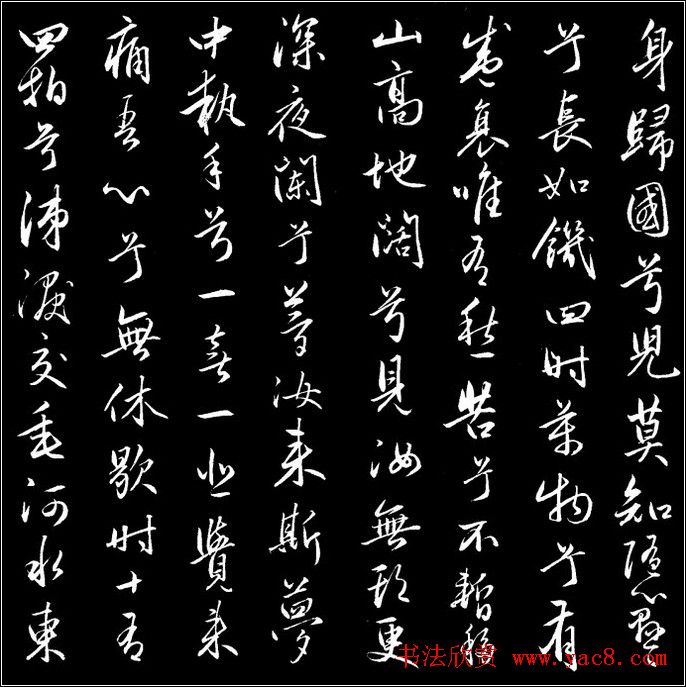 身歸國兮兒莫知隨心懸
兮長如饑四時萬物兮有
盛衰唯有愁苦兮不暫移
山高地闊兮見汝無期更
深夜闌兮夢汝來斯夢
中執手兮一喜一悲覺來
痛吾心兮無休歇時十有
四拍兮涕淚交垂河水東
书法欣赏 www.yac8.com